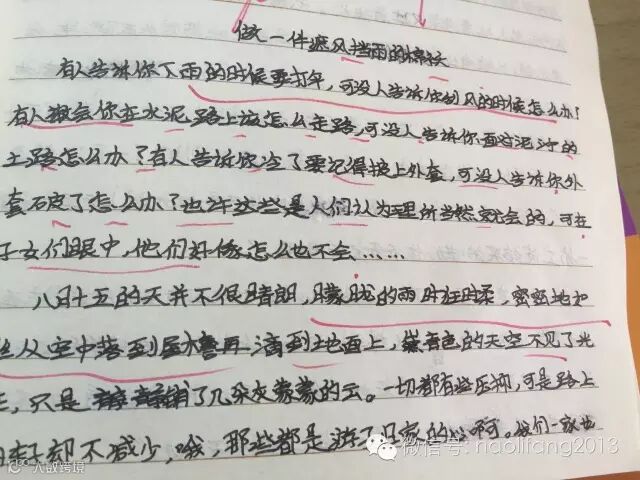 做一件遮风挡雨的棉袄
有人告诉你下雨的时候要打伞,可没人告诉你刮风的时候怎么办?
有人教会你在水泥路上该怎么走路,可没人告诉你面对泥泞的
土路怎么办?有人告诉你冷了要记得披上外套,可没人告诉你外
套破了怎么办?也许这些是人们认为理所当然就会的,可在
子女们眼中,他们好像怎么也不会……
八月十五的天并不很晴朗,朦胧的雨时狂时柔,密密地如
丝从空中落到屋檐再滴到地面上,蓝色的天空不见了光
,只是 了几朵灰蒙蒙的云。一切都有些压抑,可是路上
车子却不减少,哦,那些都是游子归家的心啊。他们一家也
微信号: haolifang2013
大数跨境